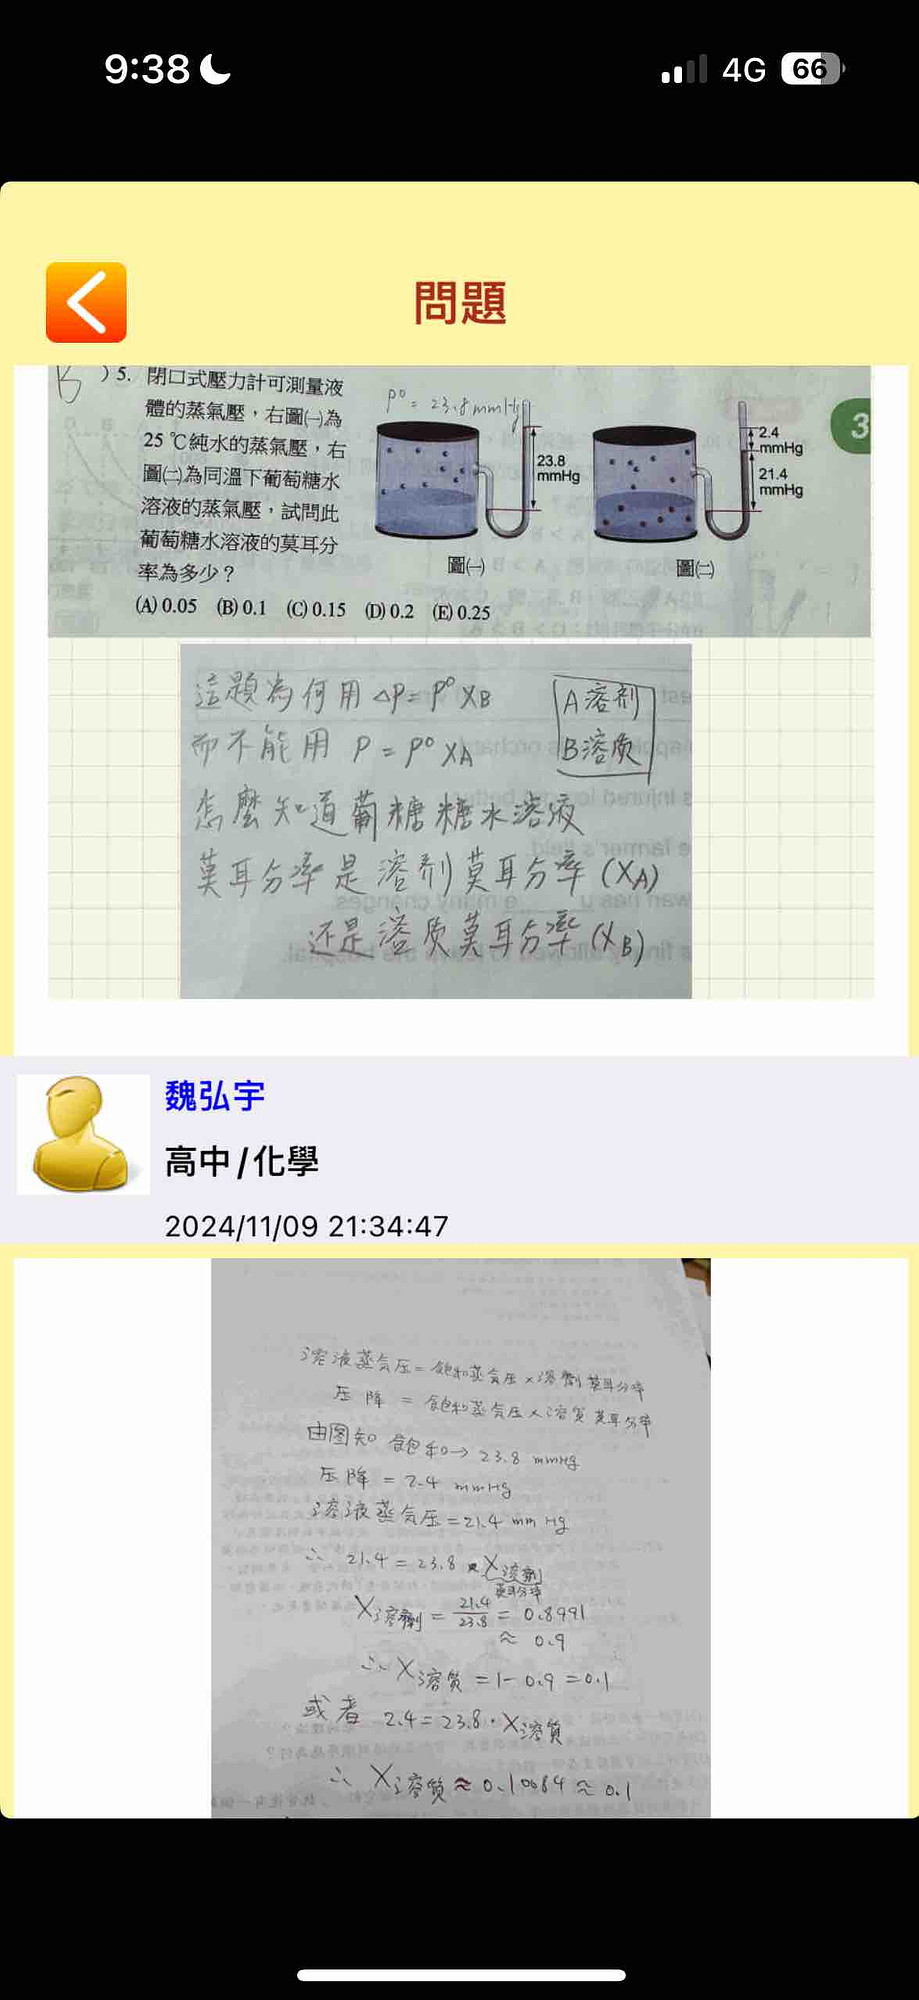 9:38
4G
66
問題
B
)5. 閉口式壓力計可測量液
體的蒸氣壓,右圖㈠為
25 ℃純水的蒸氣壓,右
圖㈡為同溫下葡萄糖水
溶液的蒸氣壓,試問此
葡萄糖水溶液的莫耳分
率為多少?
(A) 0.05 (B) 0.1 (C) 0.15 (D) 0.2 (E) 0.25
P⁰ = 23.8 mmHg
23.8
mmHg
圖㈠
2.4
mmHg
21.4
mmHg
圖㈡
3
這題為何用 ΔP = P⁰ XB
而不能用 P = P⁰ XA
A 溶剂
B 溶质
怎麼知道葡糖糖水溶液
莫耳分率是溶剂莫耳分率 (XA)
还是溶质莫耳分率 (XB)
魏弘宇
高中/化學
2024/11/09 21:34:47
溶液蒸气压 = 飽和蒸气压 × 溶劑莫耳分率
压降 = 飽和蒸气压 × 溶質莫耳分率
由图知 飽和→ 23.8 mmHg
压降 = 2.4 mmHg
溶液蒸气压 = 21.4 mmHg
∴ 21.4 = 23.8 × X溶劑
莫耳分率
X溶劑 = 21.4/23.8 = 0.8991
≈ 0.9
∴ X溶質 = 1 - 0.9 = 0.1
或者 2.4 = 23.8 · X溶質
∴ X溶質 ≈ 0.10084 ≈ 0.1